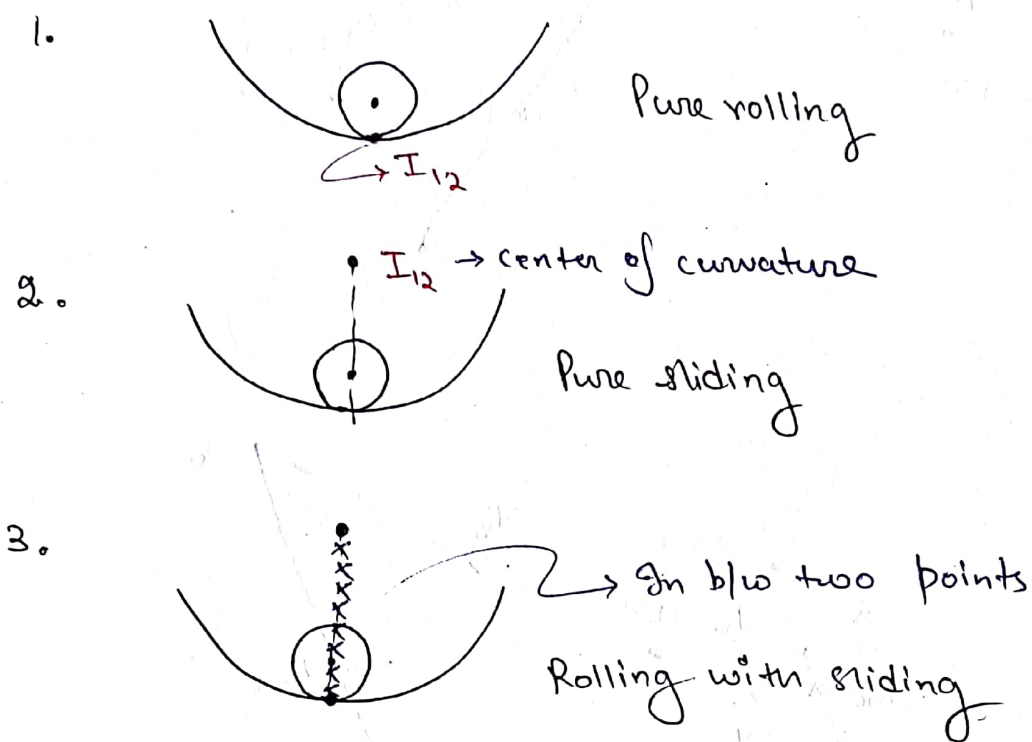 1.
Pure rolling
I12
I12 → center of curvature
2.
Pure sliding
3.
→ In b/w two points
Rolling with sliding